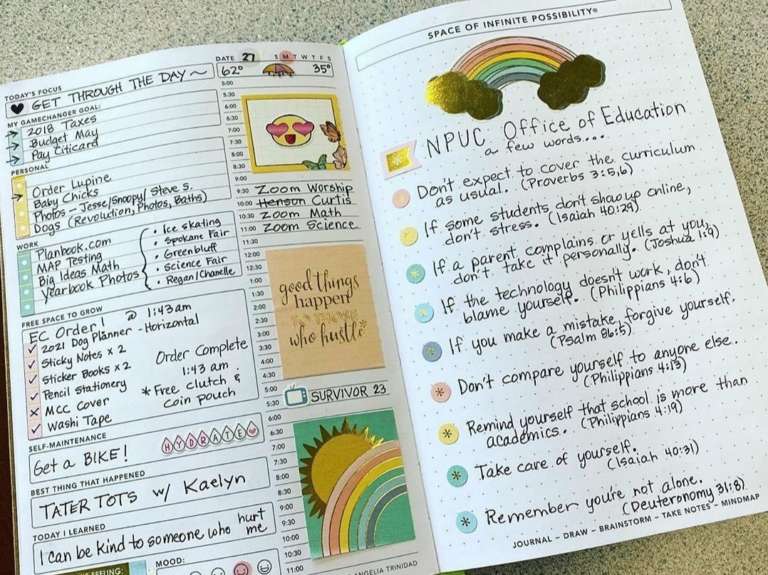 DATE 27 S M T W T F S
62° 35°
TODAY'S FOCUS
GET THROUGH THE DAY ~
MY GAMECHANGER GOAL:
2018 Taxes
Budget May
Pay Citicard
PERSONAL
Order Lupine
Baby Chicks
Photos - Jesse/Snoopy/Steve S.
Dogs (Revolution, Photos, Baths)
WORK
Planbook.com
MAP Testing
Big Ideas Math
Yearbook Photos
• Ice skating
• Spokane Fair
• Greenbluff
• Science Fair
• Regan/Chanelle
FREE SPACE TO GROW
EC Order! @ 1:43am
✓ 2021 Dog Planner - Horizontal
✓ Sticky Notes x 2
✓ Sticker Books x 2
✓ Pencil Stationery
x MCC Cover
✓ Washi Tape
Order Complete
1:43 am
* Free clutch &
coin pouch
SELF-MAINTENANCE
HYDRATE
Get a BIKE!
BEST THING THAT HAPPENED
TATER TOTS w/ Kaelyn
TODAY I LEARNED
I can be kind to someone who hurt me
FEELING:
MOOD:
5:00
5:30
6:00
6:30
7:00
7:30
8:00
8:30
9:00
9:30 Zoom Worship
10:00 Henson Curtis
10:30 Zoom Math
11:00 Zoom Science
11:30
12:00
12:30
1:00
1:30
2:00
2:30
3:00
3:30
4:00
4:30
5:00
5:30
good things
happen
to those
who hustle*
SURVIVOR 23
6:00
6:30
7:00
7:30
8:00
8:30
9:00
9:30
10:00
10:30
11:00
ANGELIA TRINIDAD
SPACE OF INFINITE POSSIBILITY®
NPUC Office of Education
a few words...
Don't expect to cover the curriculum
as usual. (Proverbs 3:5,6)
If some students don't show up online,
don't stress. (Isaiah 40:29)
If a parent complains or yells at you,
don't take it personally. (Joshua 1:9)
If the technology doesn't work, don't
blame yourself. (Philippians 4:6)
If you make a mistake, forgive yourself.
(Psalm 86:5)
Don't compare yourself to anyone else.
(Philippians 4:13)
Remind yourself that school is more than
academics. (Philippians 4:19)
Take care of yourself.
(Isaiah 40:31)
Remember you're not alone.
(Deuteronomy 31:8)
JOURNAL – DRAW – BRAINSTORM – TAKE NOTES – MINDMAP